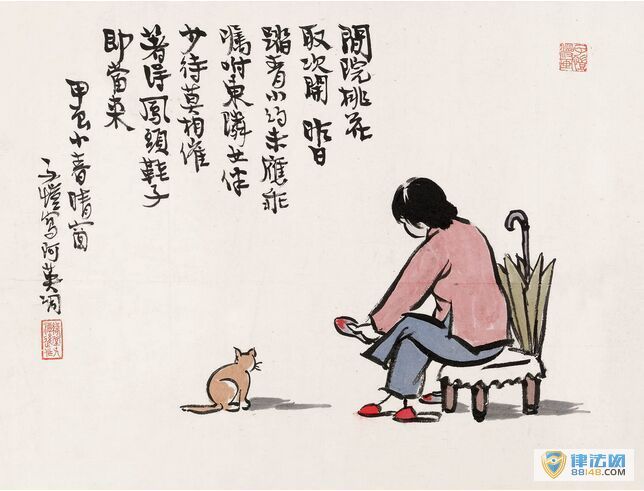 閒院桃花
取次開 昨日
踏青小約未應乖
嘱咐東隣女伴
少待莫相催
著得鳳頭鞋子
即當来
甲辰小春晴窗
子愷寫阿英词
律法网
88148.COM